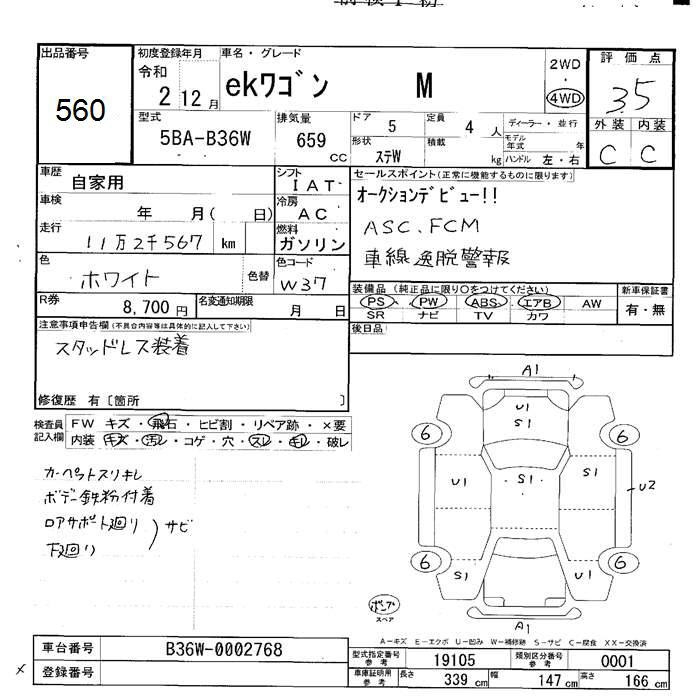 出品番号
560
初度登録年月
令和
2 12月
車名・グレード
ekワゴン M
2WD
4WD
評価点
3.5
外装 内装
C C
型式
5BA-B36W
排気量
659
CC
ドア 5
形状 ステW
定員 4 人
積載 kg
ディーラー・並行
モデル年式 年
ハンドル 左・右
車歴
自家用
シフト
IAT
車検
年 月( 日)
冷房
AC
走行
11万2千567 km
燃料
ガソリン
色
ホワイト
色替
色コード
W37
R券
8,700円
名変通知期限
月 日
セールスポイント(正常に機能するものに限ります)
オークションデビュー!!
ASC、FCM
車線逸脱警報
装備品(純正品に限り○をつけてください)
PS PW ABS エアB AW
SR ナビ TV カワ
新車保証書
有・無
後日品
注意事項申告欄(不具合内容等は具体的に記入して下さい)
スタッドレス装着
修復歴 有〔箇所 〕
検査員
記入欄
FW キズ・飛石・ヒビ割・リペア跡・×要
内装 キズ・汚レ・コゲ・穴・スレ・キレ・破レ
カーペットスリキレ
ボデー鉄粉付着
ロアサポート廻り
下廻り
サビ
A1
U1
S1
6
6
U1
S1
S1
U2
6
6
S1
U1
A1
ポンプ
スペア
A-キズ E-エクボ U-凹み W-補修跡 S-サビ C-腐食 XX-交換済
車台番号
B36W-0002768
登録番号
型式指定番号
参考
19105
類別区分番号
参考
0001
車庫証明用
参考
長さ 339 cm 幅 147 cm 高さ 166 cm